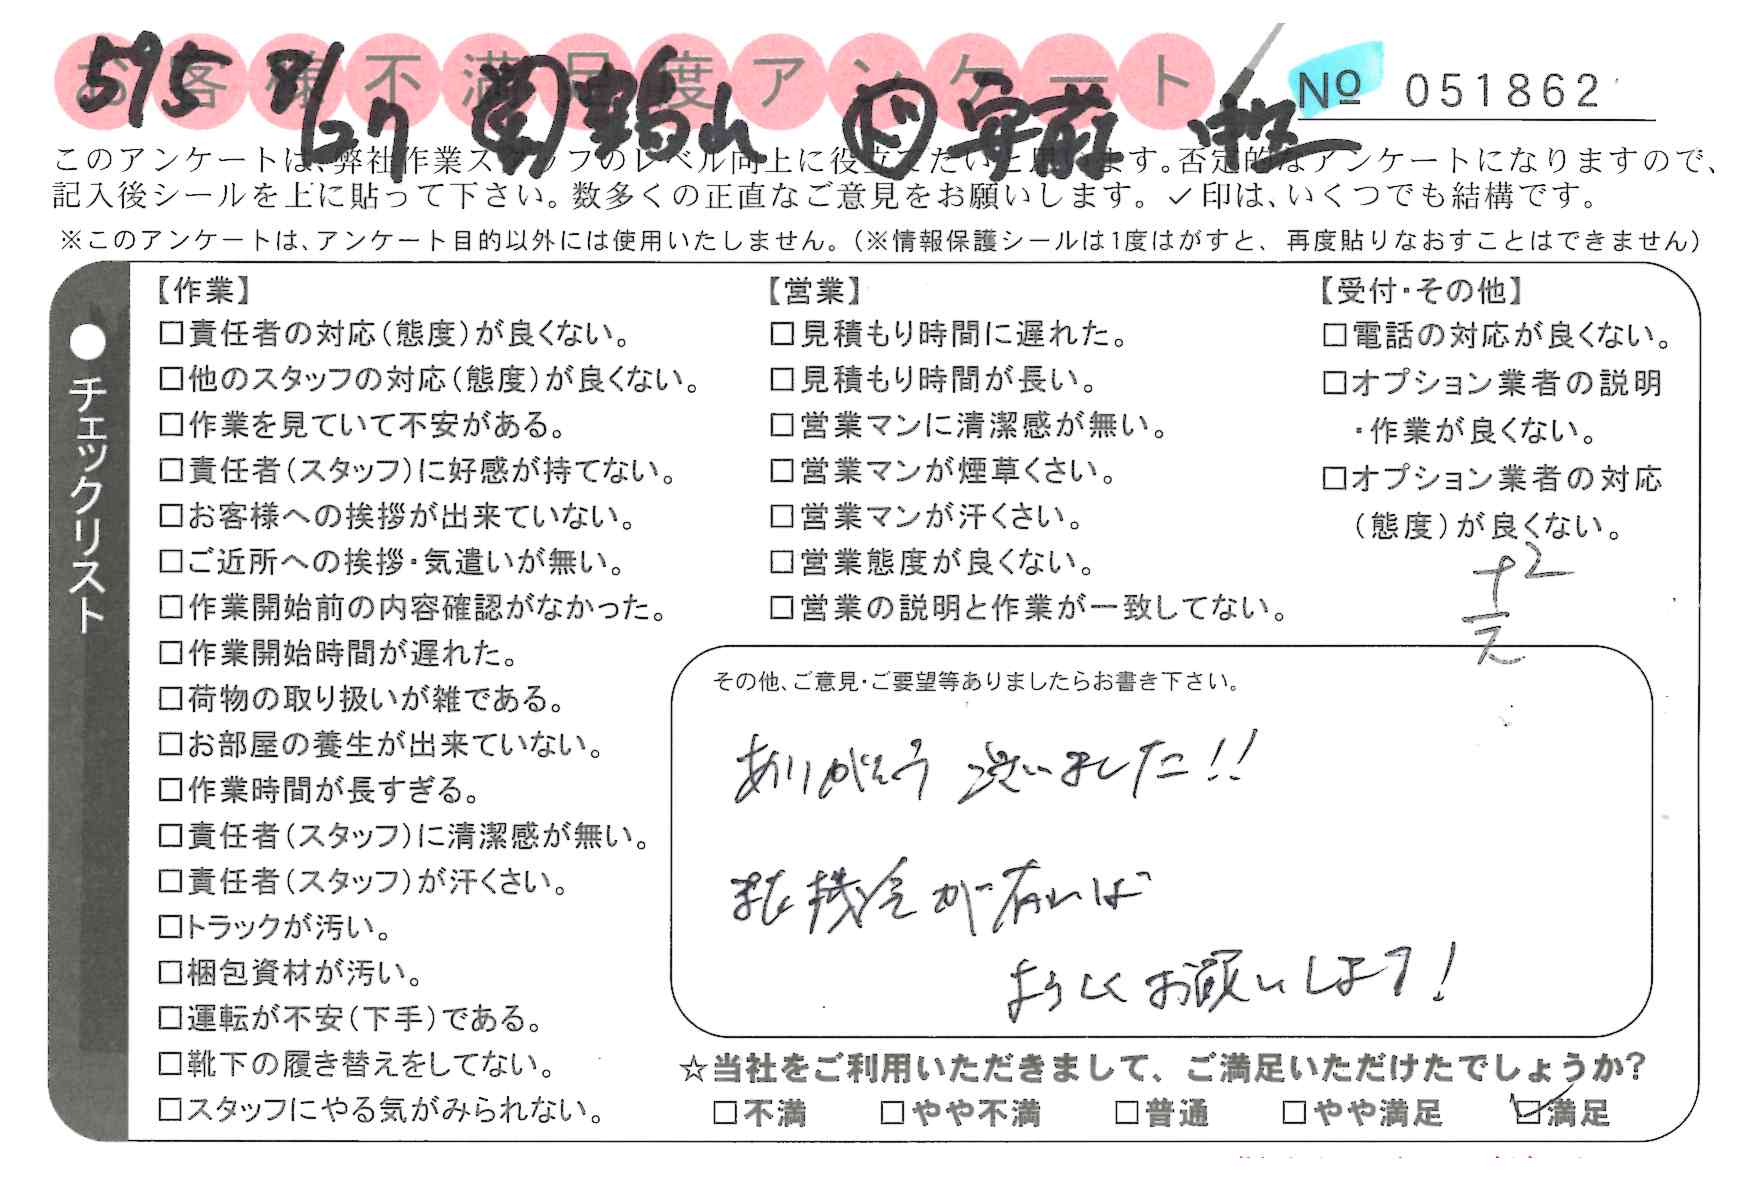 お客様不満足度アンケート
595 8/27
№ 051862
このアンケートは、弊社作業スタッフのレベル向上に役立てたいと思います。否定的なアンケートになりますので、
記入後シールを上に貼って下さい。数多くの正直なご意見をお願いします。✓印は、いくつでも結構です。
※このアンケートは、アンケート目的以外には使用いたしません。(※情報保護シールは1度はがすと、再度貼りなおすことはできません)
●チェックリスト
【作業】
□責任者の対応(態度)が良くない。
□他のスタッフの対応(態度)が良くない。
□作業を見ていて不安がある。
□責任者(スタッフ)に好感が持てない。
□お客様への挨拶が出来ていない。
□ご近所への挨拶・気遣いが無い。
□作業開始前の内容確認がなかった。
□作業開始時間が遅れた。
□荷物の取り扱いが雑である。
□お部屋の養生が出来ていない。
□作業時間が長すぎる。
□責任者(スタッフ)に清潔感が無い。
□責任者(スタッフ)が汗くさい。
□トラックが汚い。
□梱包資材が汚い。
□運転が不安(下手)である。
□靴下の履き替えをしてない。
□スタッフにやる気がみられない。
【営業】
□見積もり時間に遅れた。
□見積もり時間が長い。
□営業マンに清潔感が無い。
□営業マンが煙草くさい。
□営業マンが汗くさい。
□営業態度が良くない。
□営業の説明と作業が一致してない。
【受付・その他】
□電話の対応が良くない。
□オプション業者の説明
・作業が良くない。
□オプション業者の対応
(態度)が良くない。
+2
その他、ご意見・ご要望等ありましたらお書き下さい。
ありがとう ございました!!
また機会が有れば
よろしくお願いします!
☆当社をご利用いただきまして、ご満足いただけたでしょうか?
□不満 □やや不満 □普通 □やや満足 ☑満足